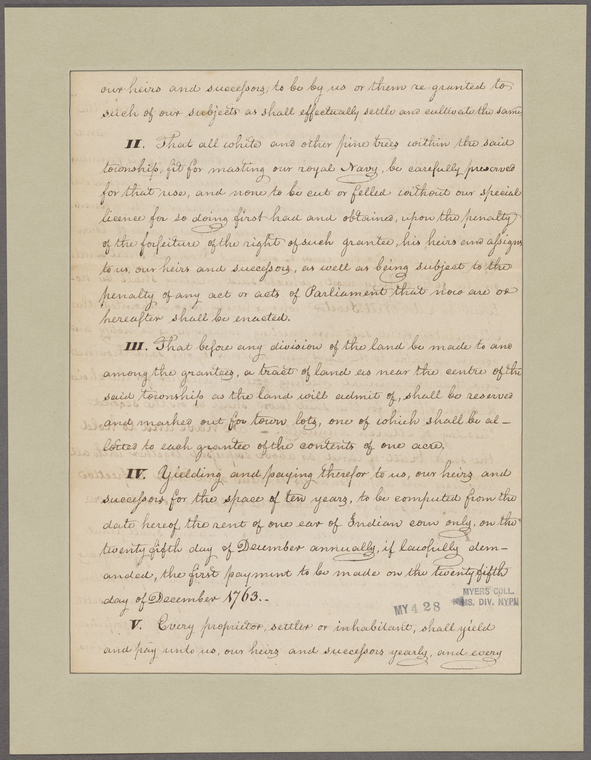 our heirs and successors, to be by us or them re granted to
such of our subjects as shall effectually settle and cultivate the same
II. That all white and other pine trees within the said
township, fit for masting our royal Navy, be carefully preserved
for that use, and none to be cut or felled without our special
licence for so doing first had and obtained, upon the penalty
of the forfeiture of the right of such grantee, his heirs and assigns
to us, our heirs and successors, as well as being subject to the
penalty of any act or acts of Parliament that now are or
hereafter shall be enacted.
III. That before any division of the land be made to and
among the grantees, a tract of land as near the centre of the
said township as the land will admit of, shall be reserved
and marked out for town lots, one of which shall be al-
lotted to each grantee of the contents of one acre.
IV. Yielding and paying therefor to us, our heirs and
successors for the space of ten years, to be computed from the
date hereof, the rent of one ear of Indian corn only, on the
twenty fifth day of December annually, if lawfully dem-
anded, the first payment to be made on the twenty fifth
day of December 1763.-
MYERS COLL.
MY 428 MS. DIV. NYPL
V. Every proprietor, settler or inhabitant, shall yield
and pay unto us, our heirs and successors yearly, and every